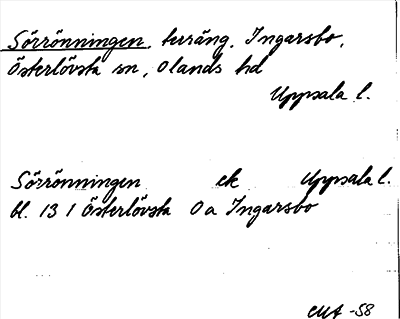 Sörrönningen, terräng, Ingarsbo,
Österlövsta sn, Olands hd
Uppsala l.
Sörrönningen ek Uppsala l.
bl. 13 1 Österlövsta Oa Ingarsbo
-58